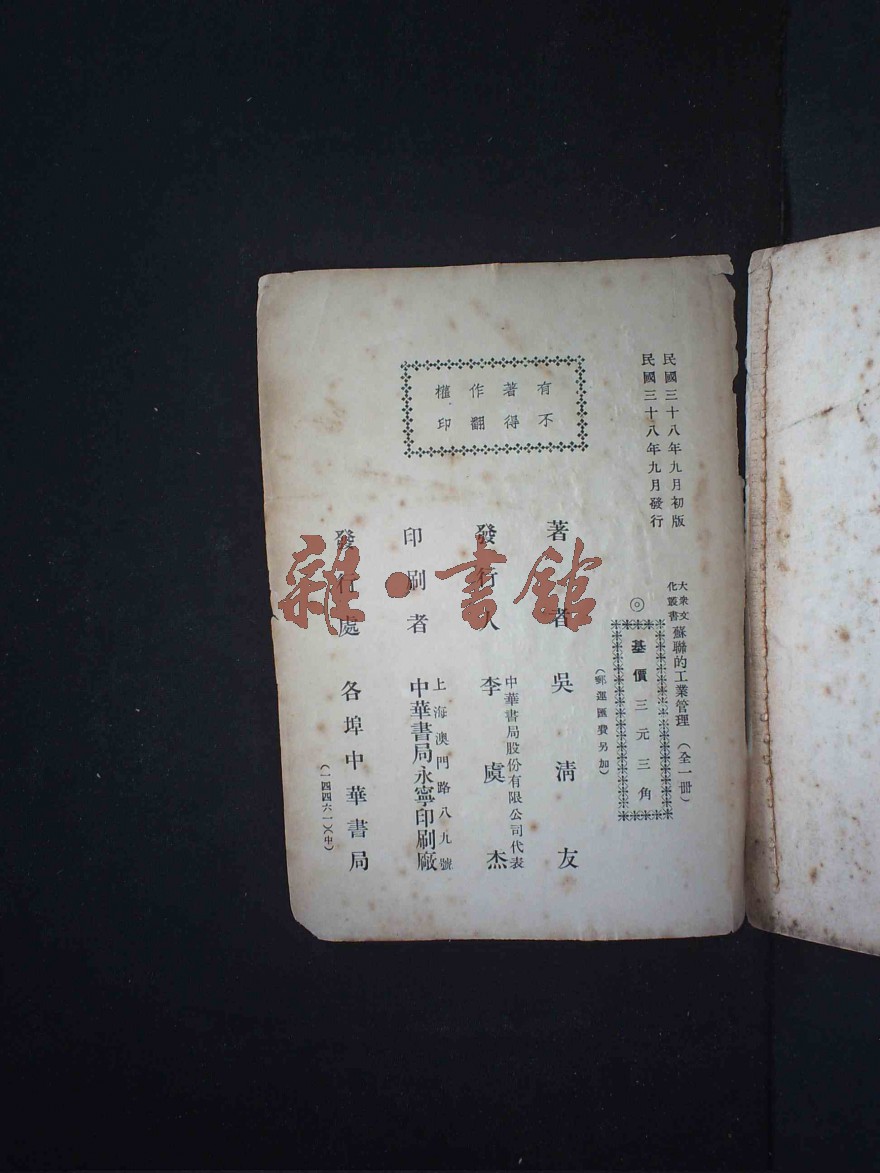 民國三十八年九月初版
民國三十八年九月發行
有著作權
不得翻印
大衆文化叢書
蘇聯的工業管理(全一冊)
◎基價三元三角
(郵運匯費另加)
著者 吳清友
發行人 李虞杰
中華書局股份有限公司代表
印刷者 中華書局永寧印刷廠
上海澳門路八九號
發行處 各埠中華書局
(一四四六一)(中)
雜·書館